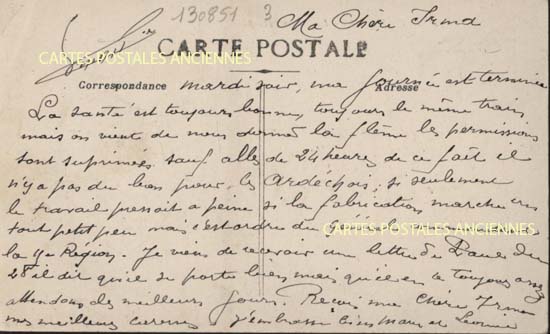 130851 3
Ma Chère Irma
CARTES POSTALES ANCIENNES
CARTE POSTALE
Correspondance Adresse
mardi soir, ma journée est terminée
La santé est toujours bonne, toujours le même train,
mais on vient de nous donner la flème les permissions
sont suprimées sauf alles de 24 heures de ce fait il
n'y a pas du bon pour les Ardéchois, si seulement
le travail pressait a peine si la fabrication marche un
tout petit peu mais s'est ordre du
CARTES POSTALES ANCIENNES
la Region. Je viens de recevoir une lettre de Paul du
28 il dit qu'il se porte bien mais qu'il en a toujours assez
attendons des meilleurs jours. Reçoi ma Chère Irma
mes meilleures caresses J'embrasse bien et Leonie